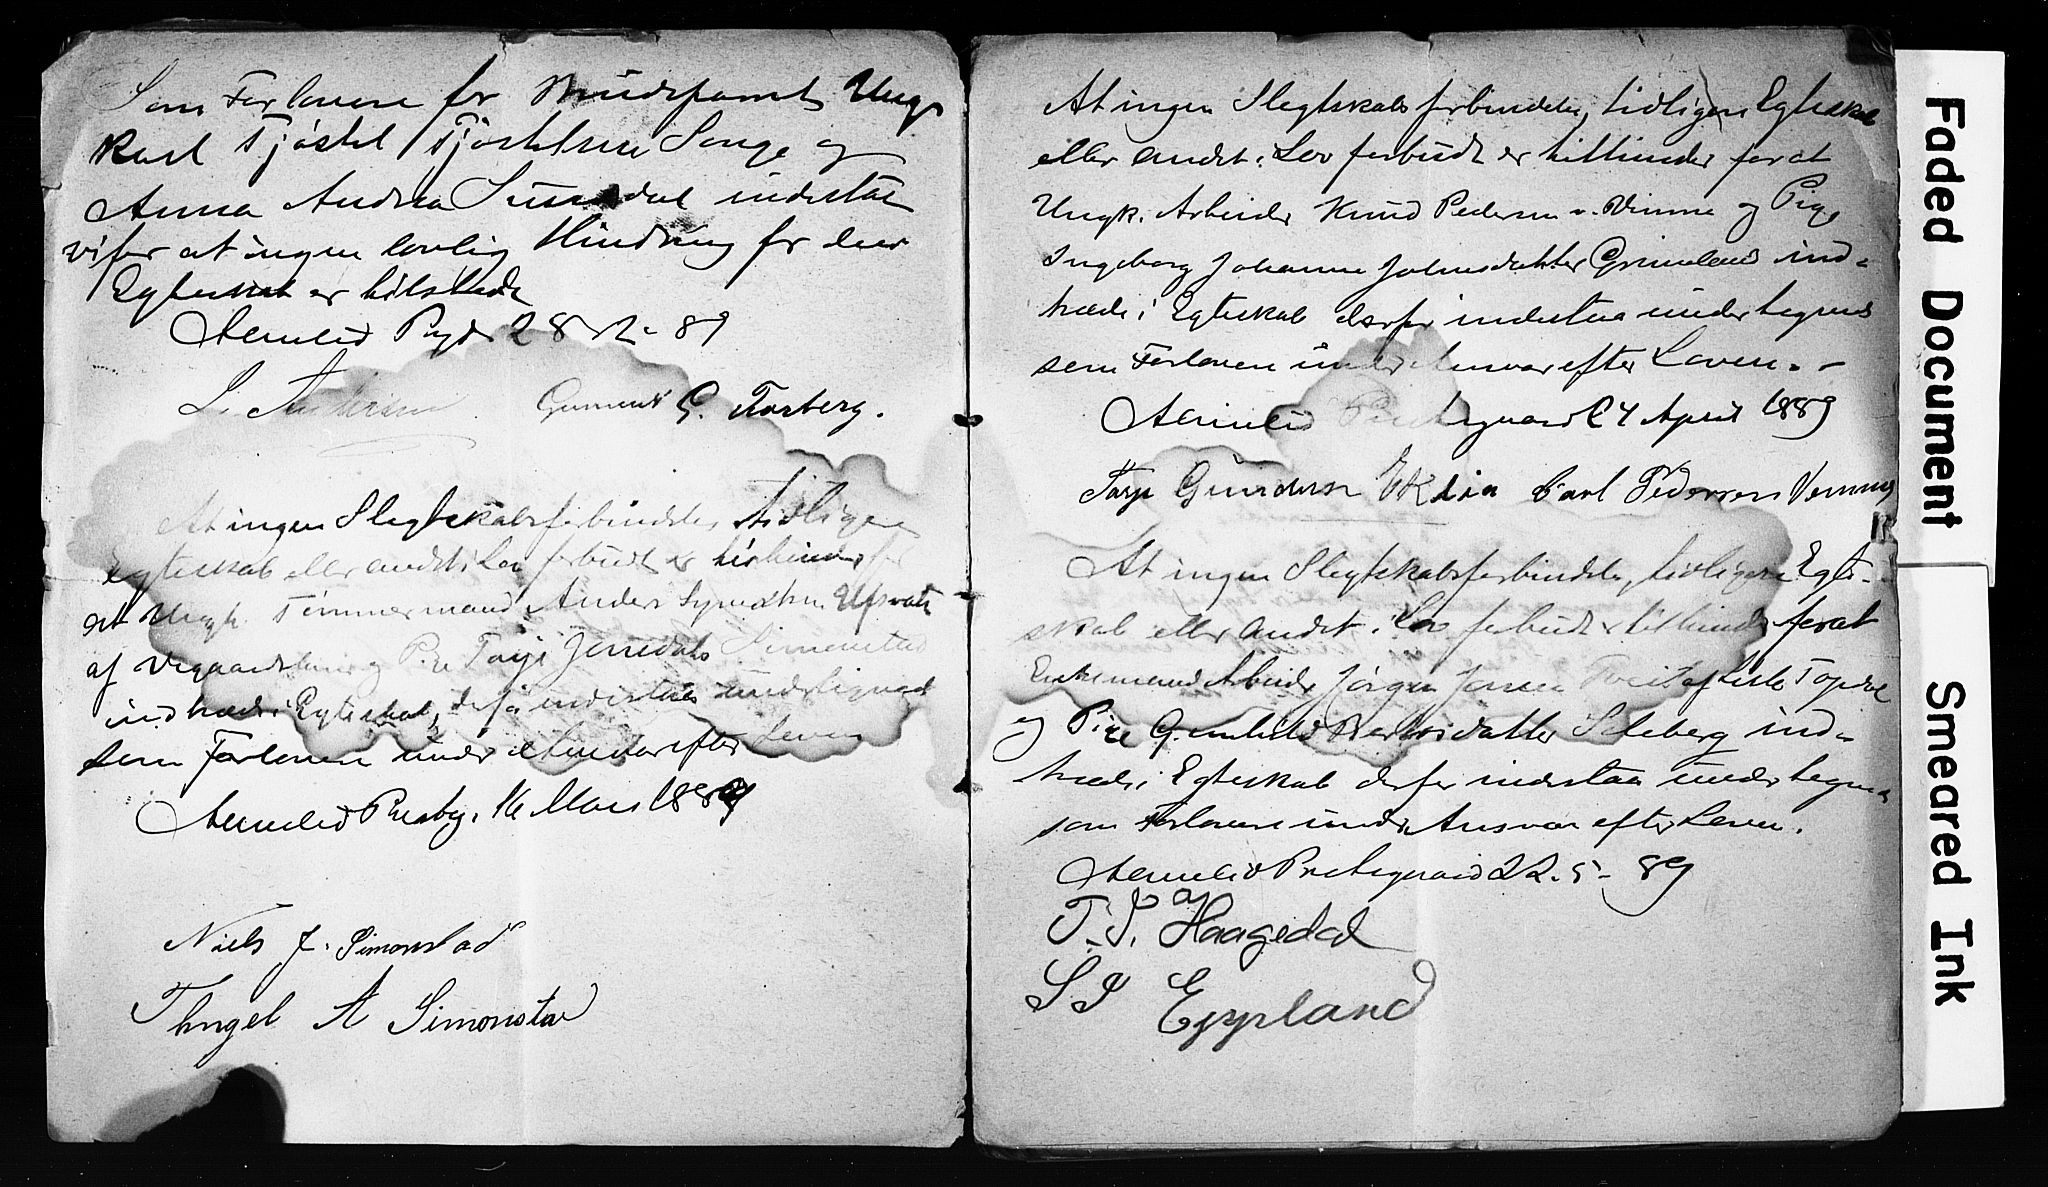 Som Forlovere for Brudeparret Ung-
karl Tjøstel Tjøstelsen Songe og
Anna Andrea Simedal indestaar
vi for at ingen lovlig Hindring for deres
Egteskab er tilstede
Aamlid Prgd 28 12 - 89
L. Andersen Gunnuf G. Torberg.
At ingen Slegtskabsforbindelse, tidligere
Egteskab eller andet i Lov forbudt er til hinder for
at Ungk. Tømmermand Anders Syvertsen Ufsvatn
af Vegaardsheien og Pige Taxi Jensdatter Simonstad
indtræde i Egteskab, derfor indestaa undertegnede
som Forlovere under Ansvar efter Loven
Aamlid Prestg. 16 Mars 1889
Niels J. Simonstad
Thngel A Simonstad
At ingen Slegtskabsforbindelse, tidligere Egteskab
eller andet i Lov forbudt er til hinder for at
Ungk. Arbeider Knud Pedersen v. Vimme og Pige
Ingeborg Johanne Johnsdatter Grimeland ind-
træde i Egteskab derfor indestaa undertegnede
som Forlovere under Ansvar efter Loven. -
Aamlid Prestegaard 24 April 1889
Tarje Gundersen Eklia Carl Pedersen Vemme
At ingen Slegtskabsforbindelse, tidligere Egte-
skab eller andet i Lov forbudt er til hinder for at
Enkemand Arbeider Jørgen Jensen Tveit af Liste Topdal
og Pige Gunhild Berthsdatter Seleberg ind-
træde i Egteskab derfor indestaa undertegnede
som Forlovere under Ansvar efter Loven.
Aamlid Prestegaard 22. 5 - 89
T. T. Haagedal
S S Eppland
Faded Document
Smeared Ink